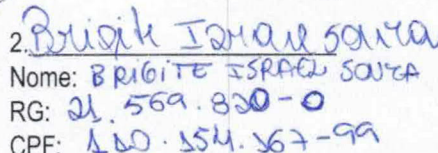 2. Brigite Israel Souza
Nome: BRIGITE ISRAEL SOUZA
RG: 21.569.820-0
CPF: